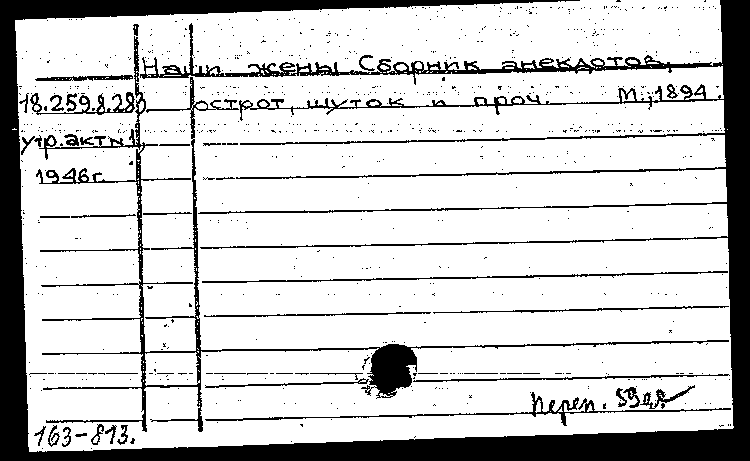 Наши жены Сборник анекдотов,
18.259.8.283 острот, шуток и проч. М., 1894.
утр. акт №1,
1946г.
Переп.
163-813.